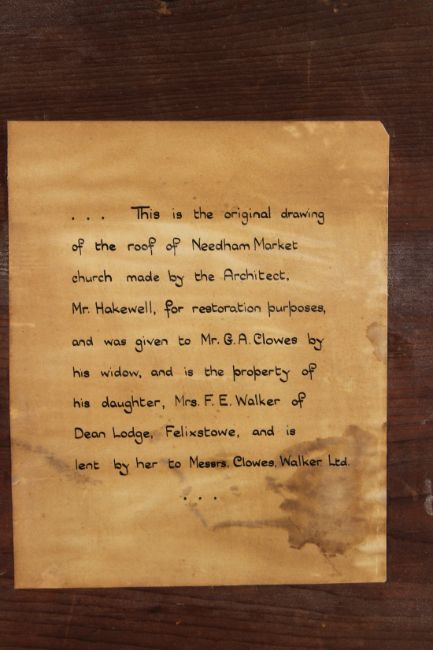 . . . This is the original drawing
of the roof of Needham Market
church made by the Architect,
Mr. Hakewell, for restoration purposes,
and was given to Mr. G. A. Clowes by
his widow, and is the property of
his daughter, Mrs. F. E. Walker of
Dean Lodge, Felixstowe, and is
lent by her to Messrs. Clowes, Walker Ltd.
. . .